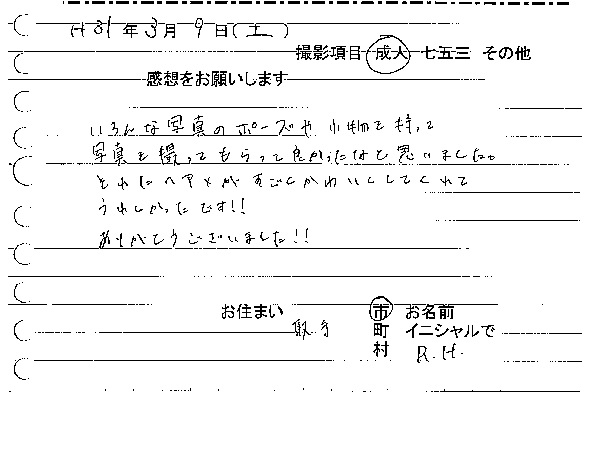 H31年3月9日(土)
撮影項目 成人 七五三 その他
感想をお願いします
いろんな写真のポーズや小物を持って
写真を撮ってもらって良かったなと思いました。
それにヘアメがすごくかわいくしてくれて
うれしかったです!!
ありがとうございました!!
お住まい 取手 市町村
お名前 イニシャルで R.H.